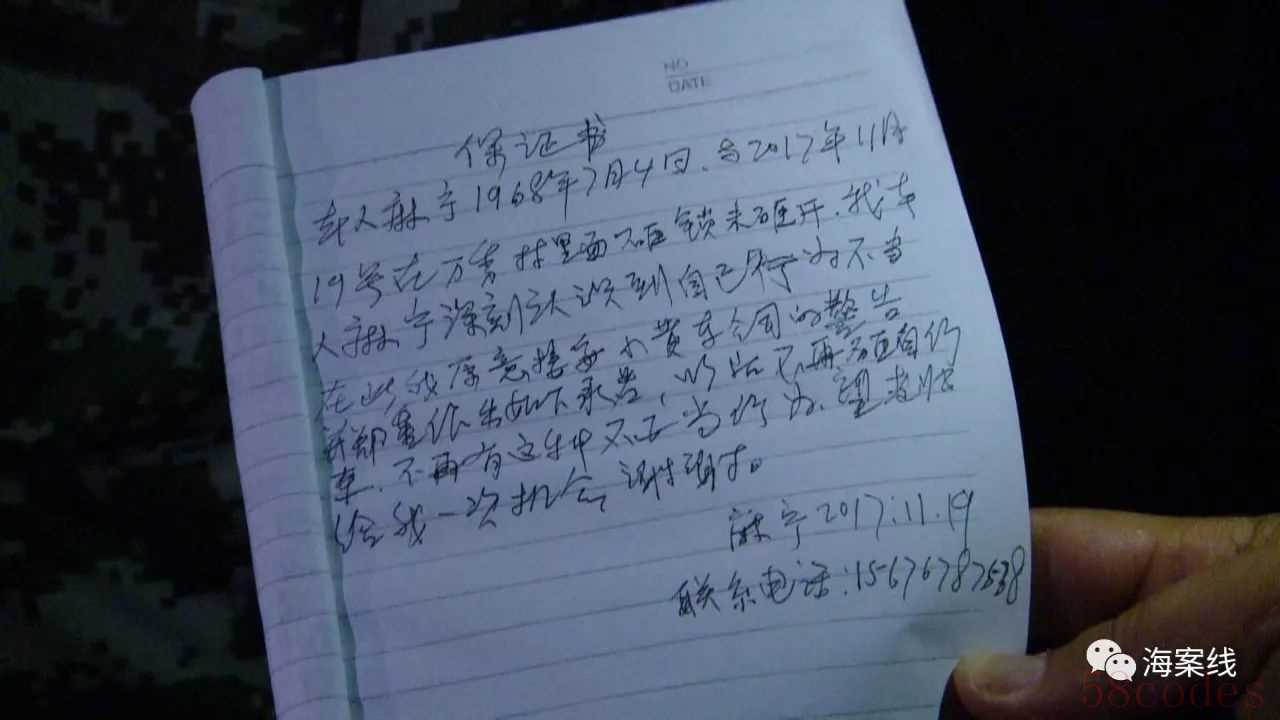 NO
DATE
保证书
本人麻宁1968年7月4日.与2017年11月
19号在万秀村里面砸锁未砸开.我本
人麻宁深刻认识到自己行为不当
在此,我愿意接受小黄车公司的警告
并郑重做出如下承若,以后不再砸自行
车.不再有这种不正当行为.望君能
给我一次机会,谢谢。
麻宁2017.11.19
联系电话:15676787538
海案线
58codes